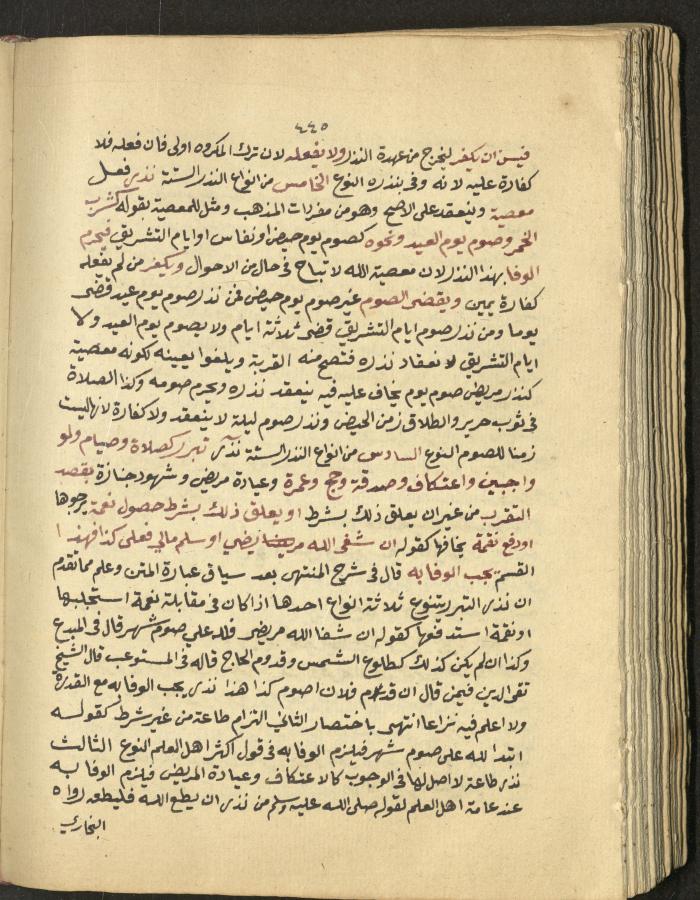 ٤٤٥
فيسن ان يكفر ليخرج من عهدة النذر ولا يفعله لان ترك المكروه اولى فان فعله فلا
كفارة عليه لانه وفى بنذره النوع الخامس من انواع النذر الستة نذر فعل
معصية وينعقد على الاصح وهو من مفردات المذهب ومثل للمعصية بقوله كشرب
الخمر وصوم يوم العيد ونحوه كصوم يوم حيض او نفاس او ايام التشريق فيحرم
الوفا بهذا النذر لان معصية الله لا تباح في حال من الاحوال ويكفر من لم يفعله
كفارة يمين ويقضى الصوم غير صوم يوم حيض فمن نذر صوم يوم عيد قضى
يوما ومن نذر صوم ايام التشريق قضى ثلاثة ايام ولا يصوم يوم العيد ولا
ايام التشريق لانعقاد نذره فتصح منه القربة ويلغوا تعيينه لكونه معصية
كنذر مريض صوم يوم يخاف عليه فيه ينعقد نذره ويحرم صومه وكذا الصلاة
في ثوب حرير والطلاق زمن الحيض ونذر صوم ليلة لا ينعقد ولا كفارة لانها ليست
زمنا للصوم النوع السادس من انواع النذر الستة نذر تبرر كصلاة وصيام ولو
واجبين واعتكاف وصدقة وحج وعمرة وعيادة مريض وشهود جنازة بقصد
التقرب من غير ان يعلق ذلك بشرط او يعلق ذلك بشرط حصول نعمة يرجوها
او دفع نقمة يخافها كقوله ان شفى الله مريضي او سلم مالي فعلى كذا فهذا
القسم يجب الوفا به قال في شرح المنتهى بعد سياق عبارة المتن وعلم مما تقدم
ان نذر التبرر يتنوع ثلاثة انواع احدها اذا كان في مقابلة نعمة استجلبها
او نقمة استدفعها كقوله ان شفا الله مريضي فلله علي صوم شهر قال في المبدع
وكذا ان لم يكن كذلك كطلوع الشمس وقدوم الحاج قاله في المستوعب قال الشيخ
تقي الدين فيمن قال ان قدم فلان اصوم كذا هذا نذر يجب الوفا به مع القدرة
ولا اعلم فيه نزاعا انتهى باختصار الثاني التزام طاعة من غير شرط كقوله
ابتدا لله علي صوم شهر فيلزم الوفا به في قول اكثر اهل العلم النوع الثالث
نذر طاعة لا اصل لها في الوجوب كالاعتكاف وعيادة المريض فيلزم الوفا به
عند عامة اهل العلم لقوله صلى الله عليه وسلم من نذر ان يطع الله فليطعه رواه
البخاري